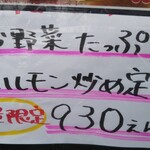 野菜たっぷ
ルモン炒め定
限定 930えん